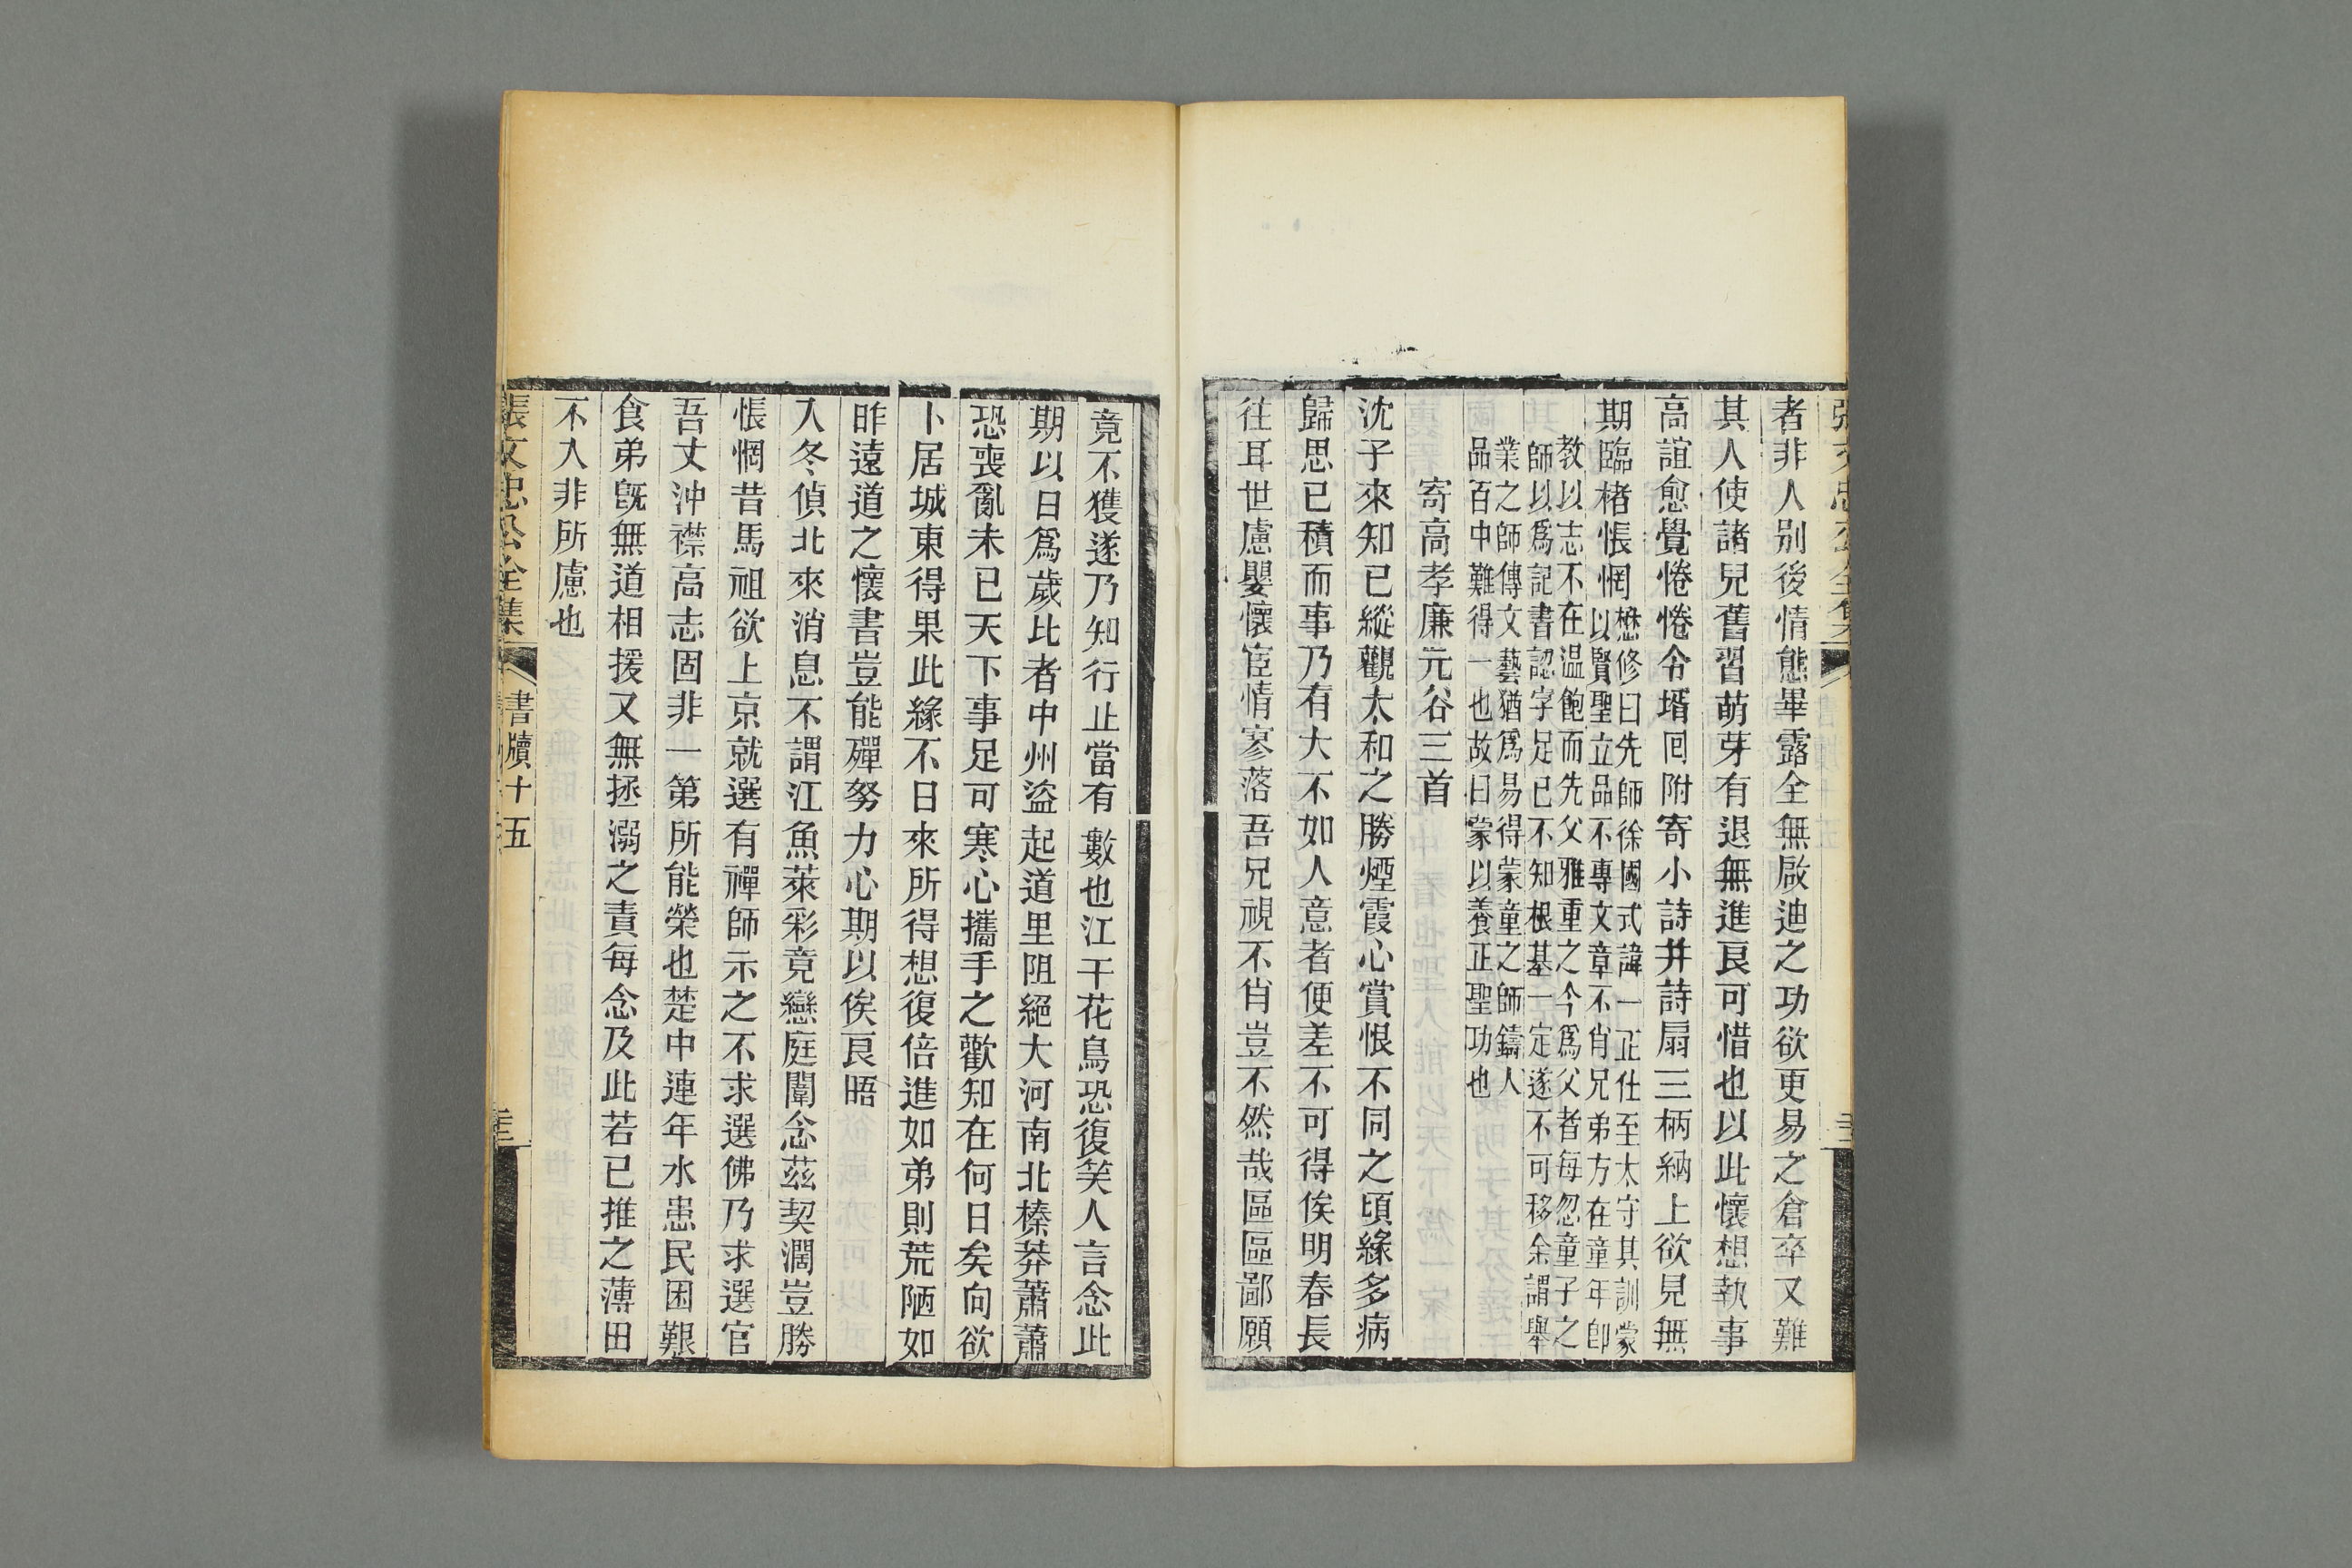 者非人別後情態畢露全無啟迪之功欲更易之倉卒又難
其人使諸兒舊習萌芽有退無進良可惜也以此懷想執事
高誼愈覺惓惓令壻回附寄小詩并詩扇三柄納上欲見無
期臨楮悵惘
懋修曰先師徐國式諱一正仕至太守其訓蒙
以賢聖立品不專文章不肖兄弟方在童年卽
教以志不在溫飽而先父雅重之今爲父者每忽童子之
師以爲記書認字足已不知根基一定遂不可移余謂舉
業之師傳文藝猶爲易得蒙童之師鑄人
品百中難得一也故曰蒙以養正聖功也
寄高孝廉元谷三首
沈子來知已縱觀太和之勝煙霞心賞恨不同之頃緣多病
歸思已積而事乃有大不如人意者便差不可得俟明春長
往耳世慮嬰懷宦情寥落吾兄視不肖豈不然哉區區鄙願
竟不獲遂乃知行止當有數也江干花鳥恐復笑人言念此
期以日爲歲比者中州盜起道里阻絕大河南北榛莽蕭蕭
恐喪亂未已天下事足可寒心攜手之歡知在何日矣向欲
卜居城東得果此緣不日來所得想復倍進如弟則荒陋如
昨遠道之懷書豈能殫努力心期以俟良晤
入冬偵北來消息不謂江魚萊彩竟戀庭闈念茲契濶豈勝
悵惘昔馬祖欲上京就選有禪師示之不求選佛乃求選官
吾丈沖襟高志固非一第所能榮也楚中連年水患民困艱
食弟旣無道相援又無拯溺之責每念及此若已推之薄田
不入非所慮也
張文忠公全集
書牘十五